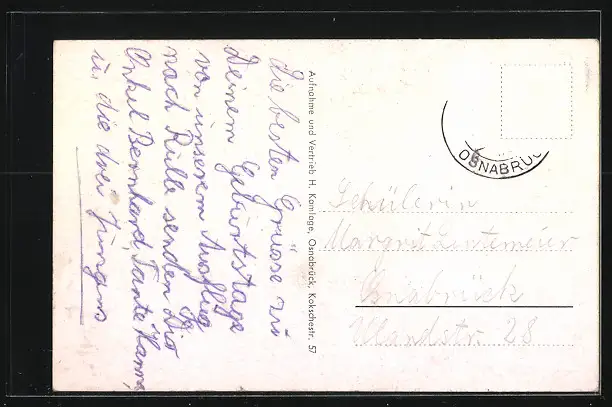 Die besten Grüsse zu
Deinem Geburtstage
von unserem Ausflug
nach Rulle senden Dir
Onkel Bernhard, Tante Hanna,
u. die drei Jungens
Aufnahme und Vertrieb H. Kamlage, Osnabrück, Kokschestr. 57
OSNABRÜC
Schülerin
Margrit Lintemeier
Osnabrück
Uhlandstr. 28